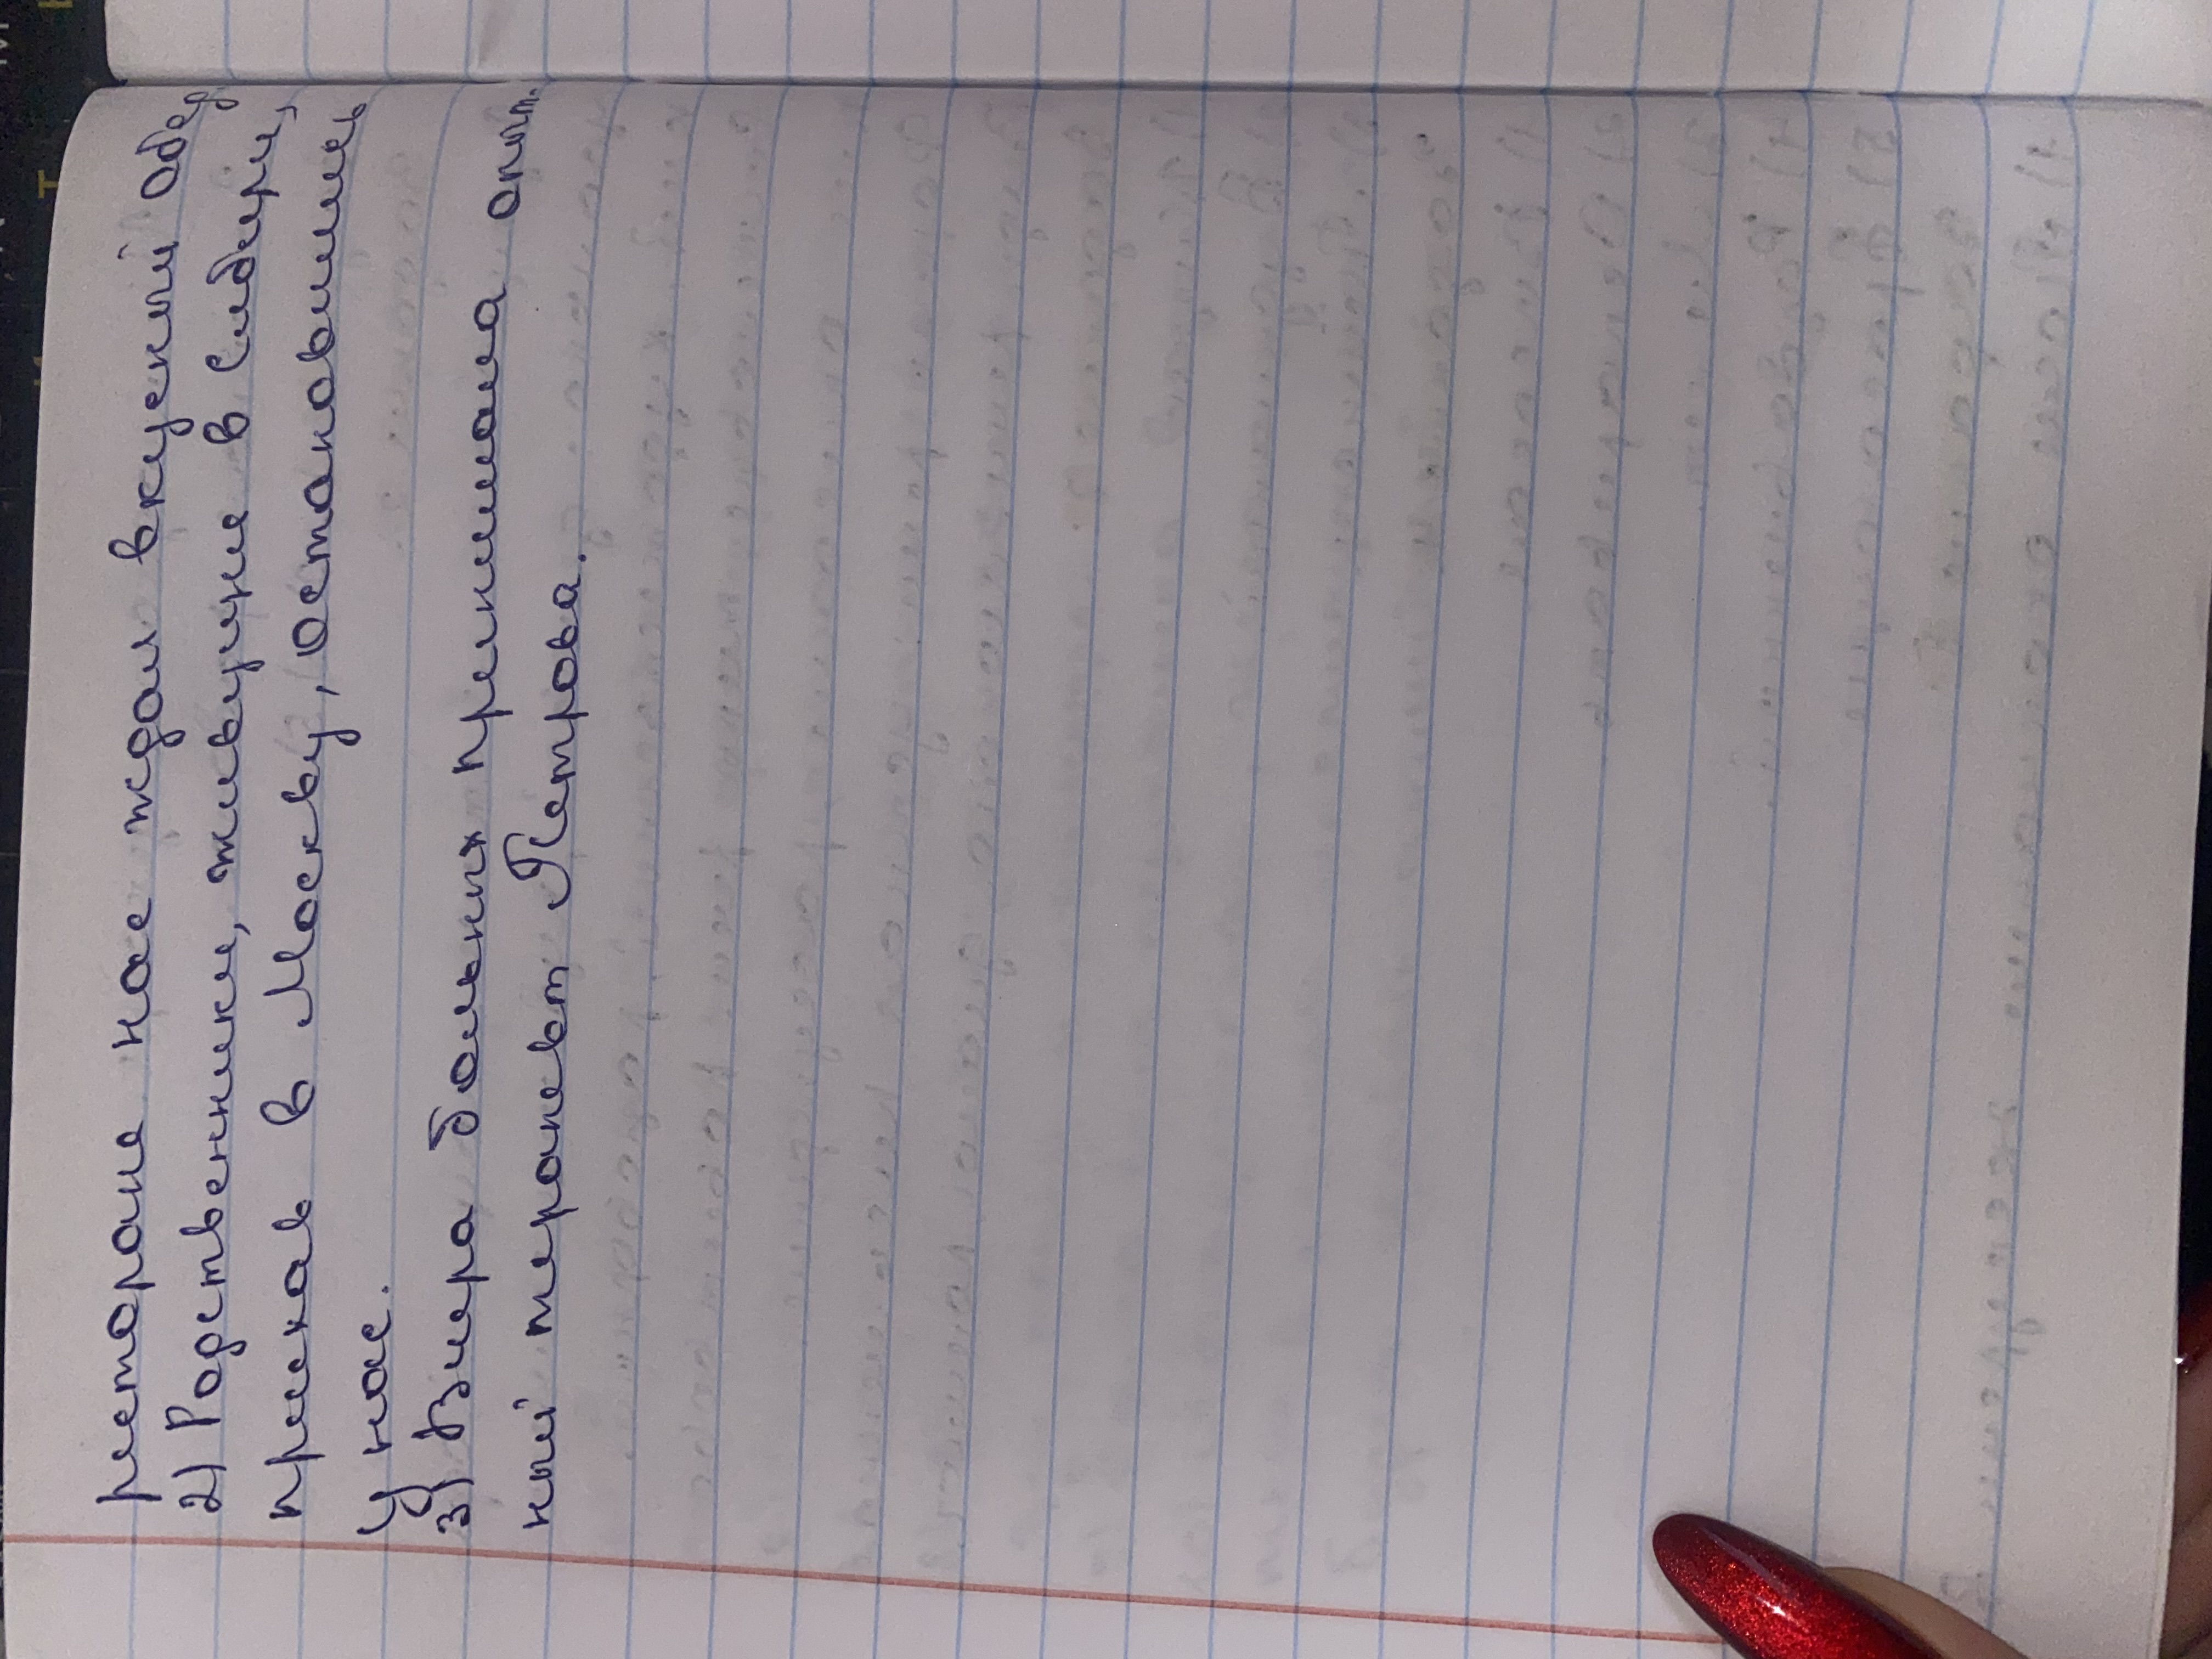 реторане нас ждал вкусный обед
2) Родственники, живущие в Сибири,
приехав в Москву, остановились
у нас.
3) Вчера больных принимала опыт.
ный терапевт Петрова.